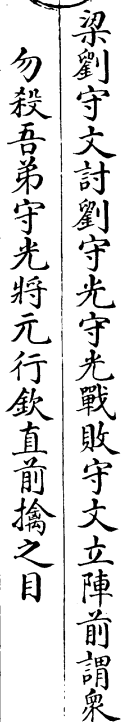 梁劉守文討劉守光守光戰敗守文立陣前謂衆
勿殺吾弟守光將元行欽直前擒之目